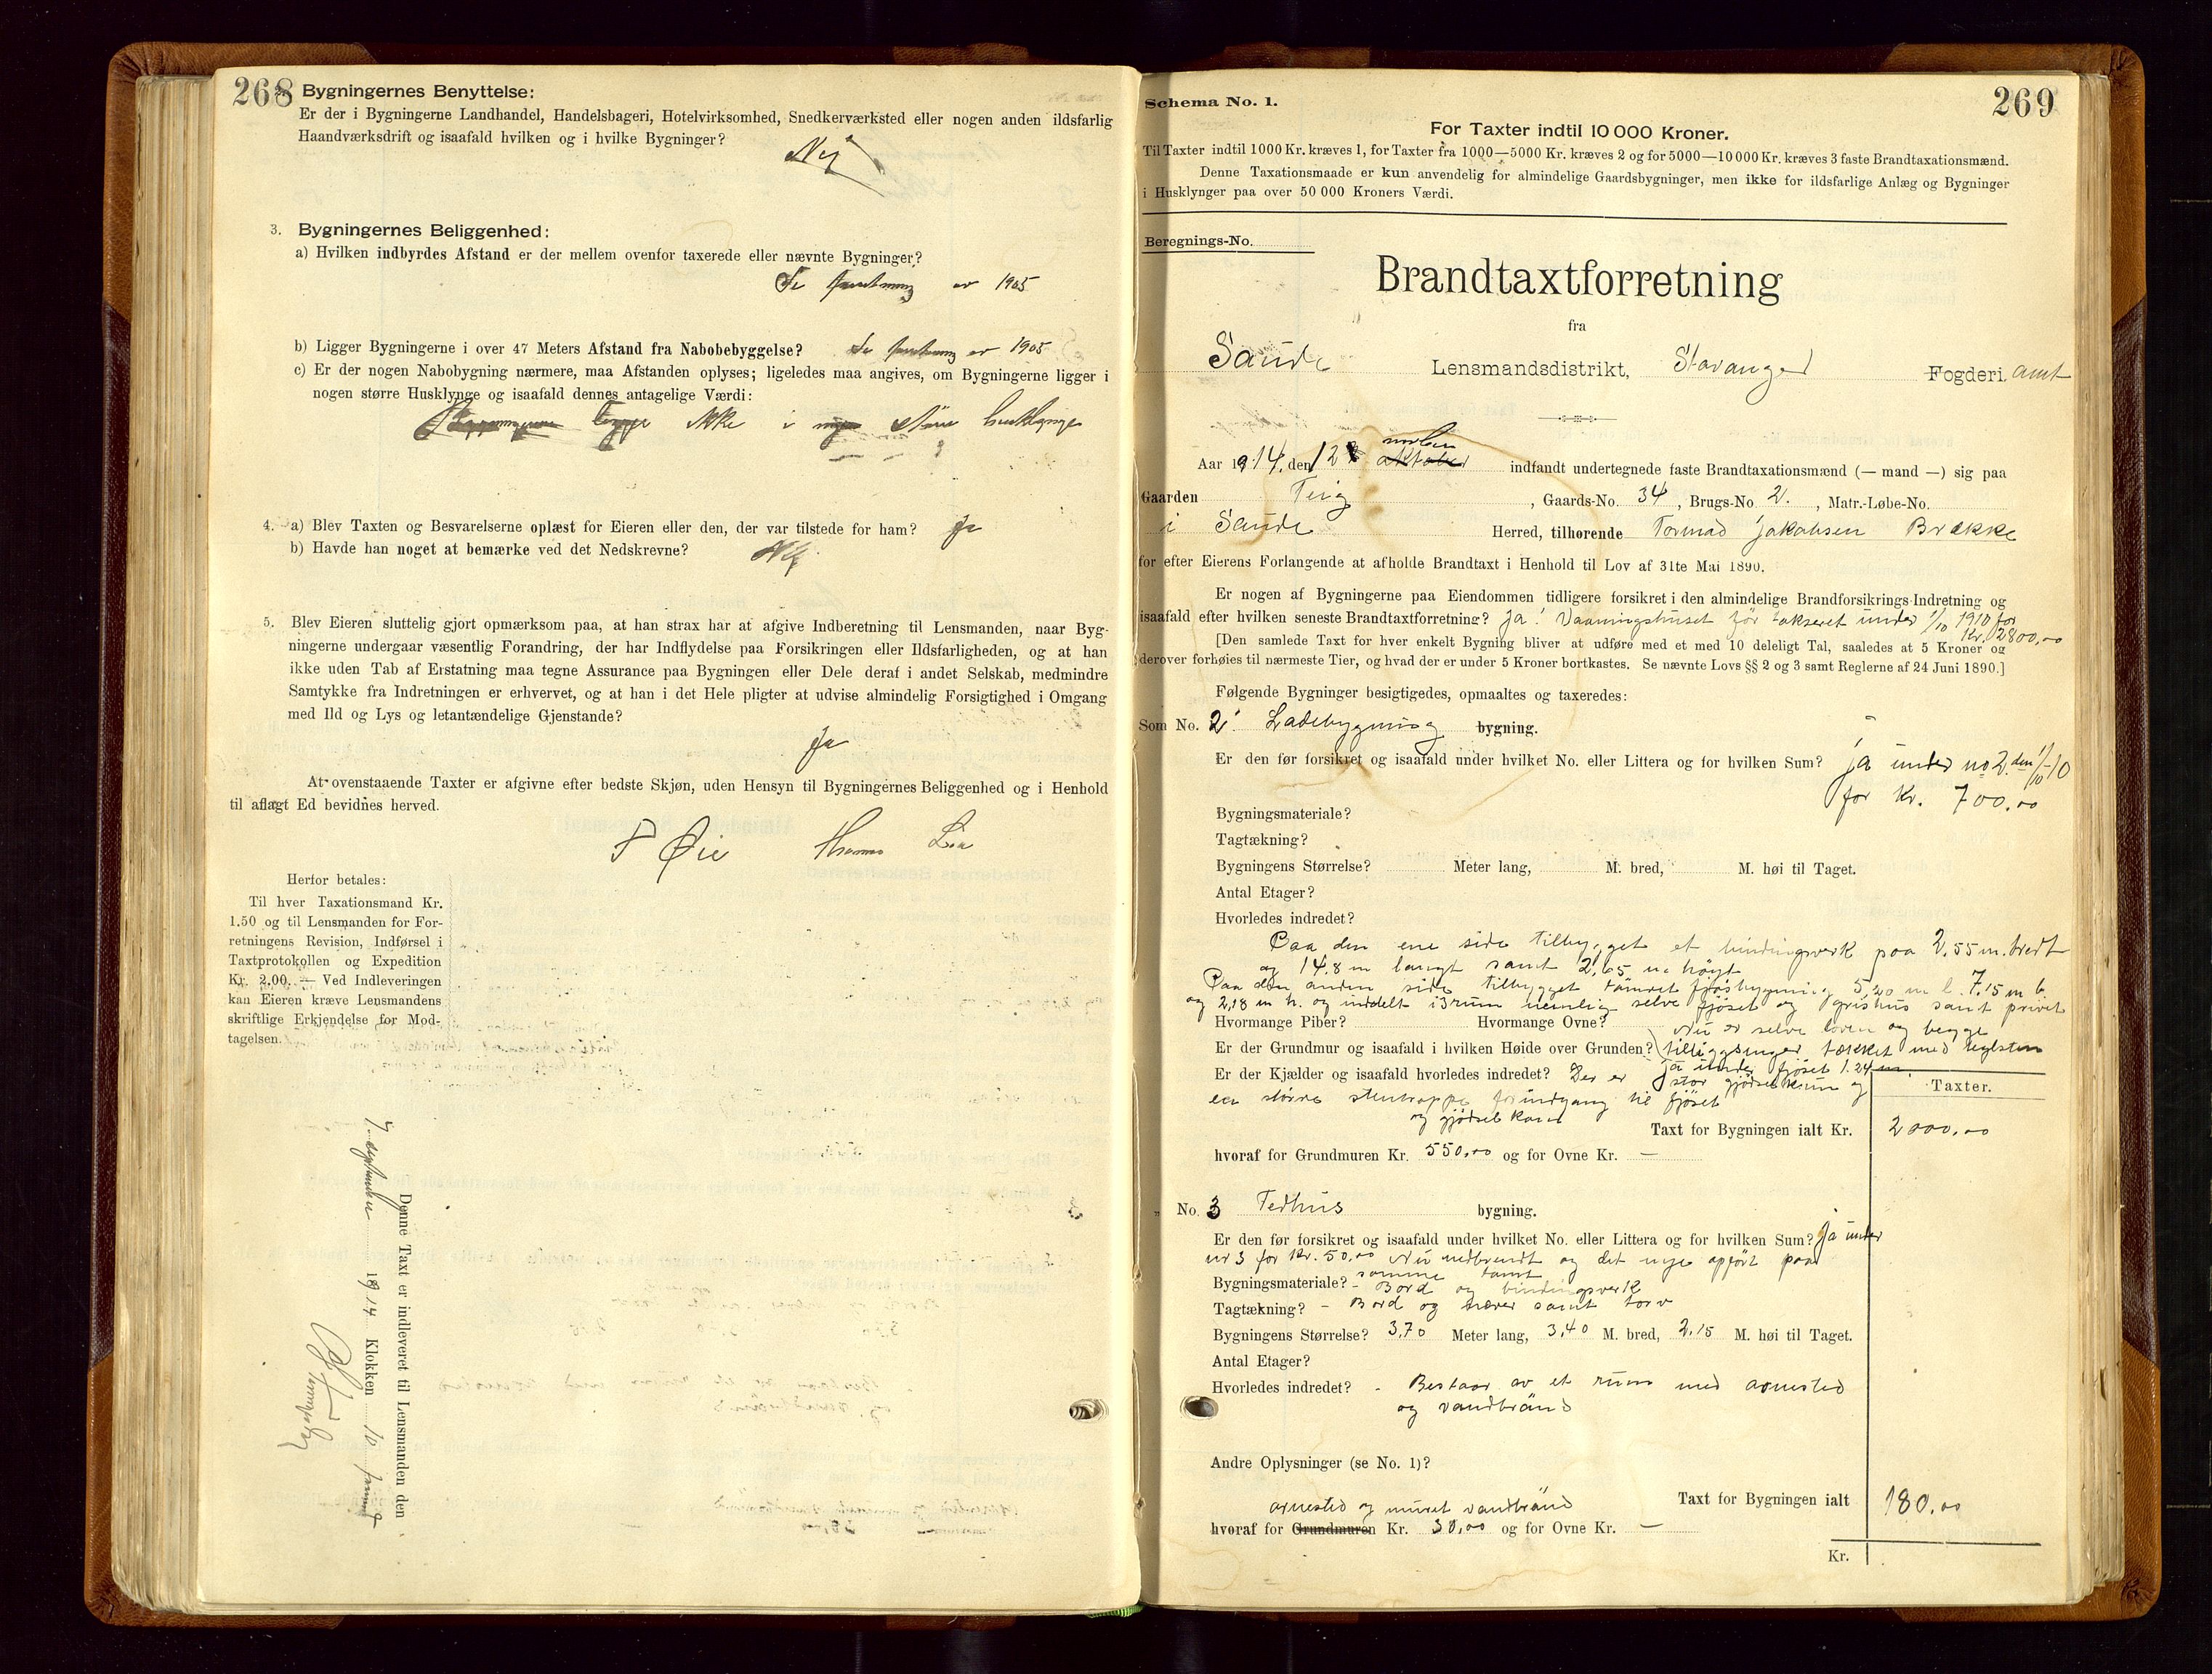 268 Bygningernes Benyttelse:
Er der i Bygningerne Landhandel, Handelsbageri, Hotelvirksomhed, Snedkerværksted eller nogen anden ildsfarlig
Haandværksdrift og isaafald hvilken og i hvilke Bygninger?
Nej
3. Bygningernes Beliggenhed:
a) Hvilken indbyrdes Afstand er der mellem ovenfor taxerede eller nævnte Bygninger?
Se forretning av 1905
b) Ligger Bygningerne i over 47 Meters Afstand fra Nabobebyggelse? Se forretning av 1905
c) Er der nogen Nabobygning nærmere, maa Afstanden oplyses; ligeledes maa angives, om Bygningerne ligger i
nogen større Husklynge og isaafald dennes antagelige Værdi:
ligge ikke i større husklynge
4. a) Blev Taxten og Besvarelserne oplæst for Eieren eller den, der var tilstede for ham? Ja
b) Havde han noget at bemærke ved det Nedskrevne? Nej
5. Blev Eieren sluttelig gjort opmærksom paa, at han strax har at afgive Indberetning til Lensmanden, naar Byg-
ningerne undergaar væsentlig Forandring, der har Indflydelse paa Forsikringen eller Ildsfarligheden, og at han
ikke uden Tab af Erstatning maa tegne Assurance paa Bygningen eller Dele deraf i andet Selskab, medmindre
Samtykke fra Indretningen er erhvervet, og at han i det Hele pligter at udvise almindelig Forsigtighed i Omgang
med Ild og Lys og letantændelige Gjenstande?
Ja
At ovenstaaende Taxter er afgivne efter bedste Skjøn, uden Hensyn til Bygningernes Beliggenhed og i Henhold
til aflagt Ed bevidnes herved.
F Øie Thomas Lea
Herfor betales:
Til hver Taxationsmand Kr.
1.50 og til Lensmanden for For-
retningens Revision, Indførsel i
Taxtprotokollen og Expedition
Kr. 2.00. — Ved Indleveringen
kan Eieren kræve Lensmandens
skriftlige Erkjendelse for Mod-
tagelsen.
Denne Taxt er indleveret til Lensmanden den
7 september 1914 Klokken 10 formid
269
Schema No. 1.
For Taxter indtil 10 000 Kroner.
Til Taxter indtil 1000 Kr. kræves 1, for Taxter fra 1000—5000 Kr. kræves 2 og for 5000—10 000 Kr. kræves 3 faste Brandtaxationsmænd.
Denne Taxationsmaade er kun anvendelig for almindelige Gaardsbygninger, men ikke for ildsfarlige Anlæg og Bygninger
i Husklynger paa over 50 000 Kroners Værdi.
Beregnings-No.
Brandtaxtforretning
fra
Saude Lensmandsdistrikt, Stavanger Fogderi. amt
Aar 1914, den 12 oktober indfandt undertegnede faste Brandtaxationsmænd (— mand —) sig paa
Gaarden Teig, Gaards-No. 34, Brugs-No. 2., Matr.-Løbe-No.
i Saude Herred, tilhørende Tormod Jakobsen Brække
for efter Eierens Forlangende at afholde Brandtaxt i Henhold til Lov af 31te Mai 1890.
Er nogen af Bygningerne paa Eiendommen tidligere forsikret i den almindelige Brandforsikrings-Indretning og
isaafald efter hvilken seneste Brandtaxtforretning? Ja! Vaaningshuset før takseret under 1/10 1910 for
Kr. 2800,00
[Den samlede Taxt for hver enkelt Bygning bliver at udføre med et med 10 deleligt Tal, saaledes at 5 Kroner og
derover forhøies til nærmeste Tier, og hvad der er under 5 Kroner bortkastes. Se nævnte Lovs §§ 2 og 3 samt Reglerne af 24 Juni 1890.]
Følgende Bygninger besigtigedes, opmaaltes og taxeredes:
Som No. 2. Ladebygning bygning.
Er den før forsikret og isaafald under hvilket No. eller Littera og for hvilken Sum? ja under no 2. den 1/10-10
for Kr. 700.00
Bygningsmateriale?
Tagtækning?
Bygningens Størrelse? Meter lang, M. bred, M. høi til Taget.
Antal Etager?
Hvorledes indredet?
Paa den ene side tilbygget et bindingsverk paa 2,55 m. bredt
og 14,8 m langt samt 2,65 m høgt
Paa den anden side tilbygget tømret fjøsbygning 5,20 m l. 7,15 m b.
og 2,18 m h. og inddelt i 3 rum nemlig selve fjøset og grishus samt privet
Hvormange Piber? Hvormange Ovne? Nu er selve loven og begge
Er der Grundmur og isaafald i hvilken Høide over Grunden? tilbygginger tækket med teglsten
ja under fjøset 1.24 m.
Er der Kjælder og isaafald hvorledes indredet? Der er stor gjødselkum og
en større stentrappe for indgang til fjøset
og gjødselkum
Taxter.
Taxt for Bygningen ialt Kr. 2000,00
hvoraf for Grundmuren Kr. 550,00 og for Ovne Kr. —
" No. 3 Fedhus bygning.
Er den før forsikret og isaafald under hvilket No. eller Littera og for hvilken Sum? Ja under
nr 3 for Kr. 50,00 Nu nedbrendt og det nye opført paa
samme tomt
Bygningsmateriale? - Bord og bindingsverk
Tagtækning? - Bord og næver samt torv
Bygningens Størrelse? 3,70 Meter lang, 3,40 M. bred, 2,15 M. høi til Taget.
Antal Etager?
Hvorledes indredet? - Bestaar av et rum med arnested
og vandbrønd
Andre Oplysninger (se No. 1)?
arnested og muret vandbrønd Taxt for Bygningen ialt 180.00
hvoraf for Grundmuren Kr. 30,00 og for Ovne Kr. —
Kr.